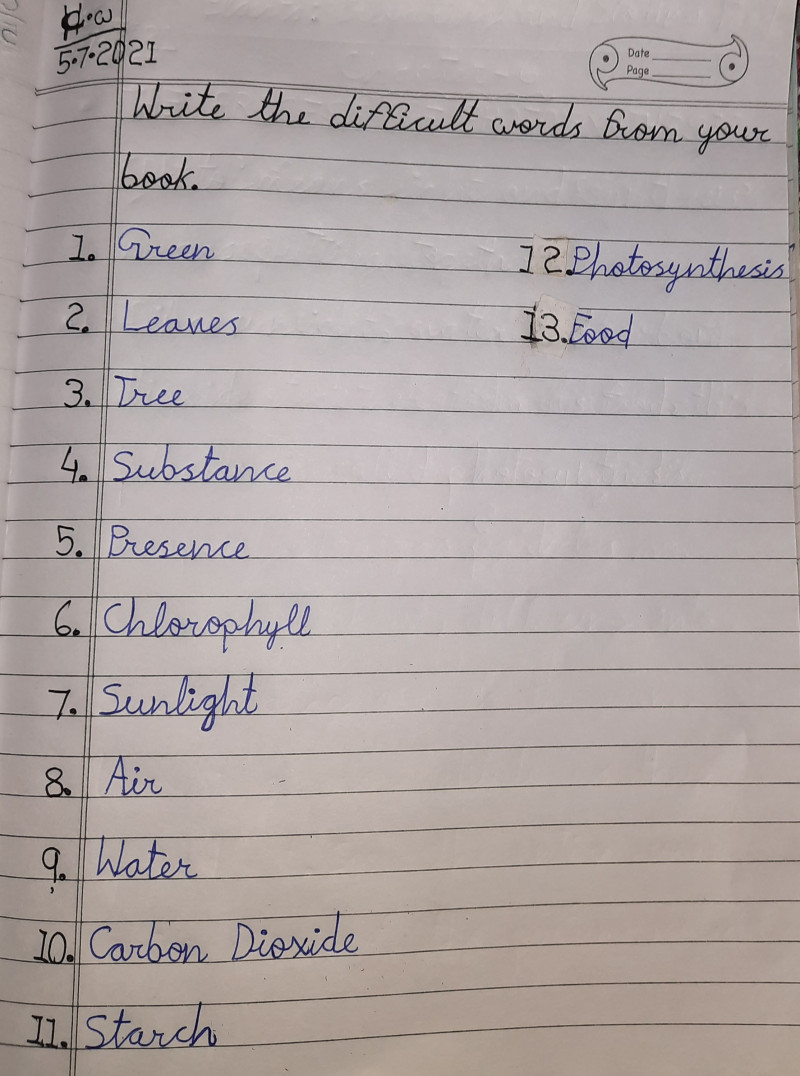 H.W
5.7.2021
Date
Page
Write the difficult words from your
book.
1. Green
2. Leaves
3. Tree
4. Substance
5. Presence
6. Chlorophyll
7. Sunlight
8. Air
9. Water
10. Carbon Dioxide
11. Starch
12. Photosynthesis
13. Food